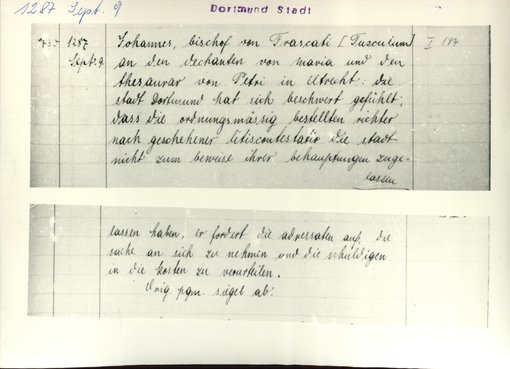 1287 Sept. 9
Dortmund Stadt
1287 Johannes, bischof von Frascati [Tusculum] I 187
Sept. 9. an den dechanten von maria und den
thesaurar von Petri in Utraht: die
stadt Dortmund hat sich beschwert gefühlt,
dass die ordnungsmässig bestellten richter
nach geschehener litiscontestatio die stadt
nicht zum beweise ihrer behauptungen zuge-
lassen
lassen haben, er fordert die adressaten auf, die
sache an sich zu nehmen und die schuldigen
in die kosten zu verurteilen.
Orig. pgm. siegel ab.